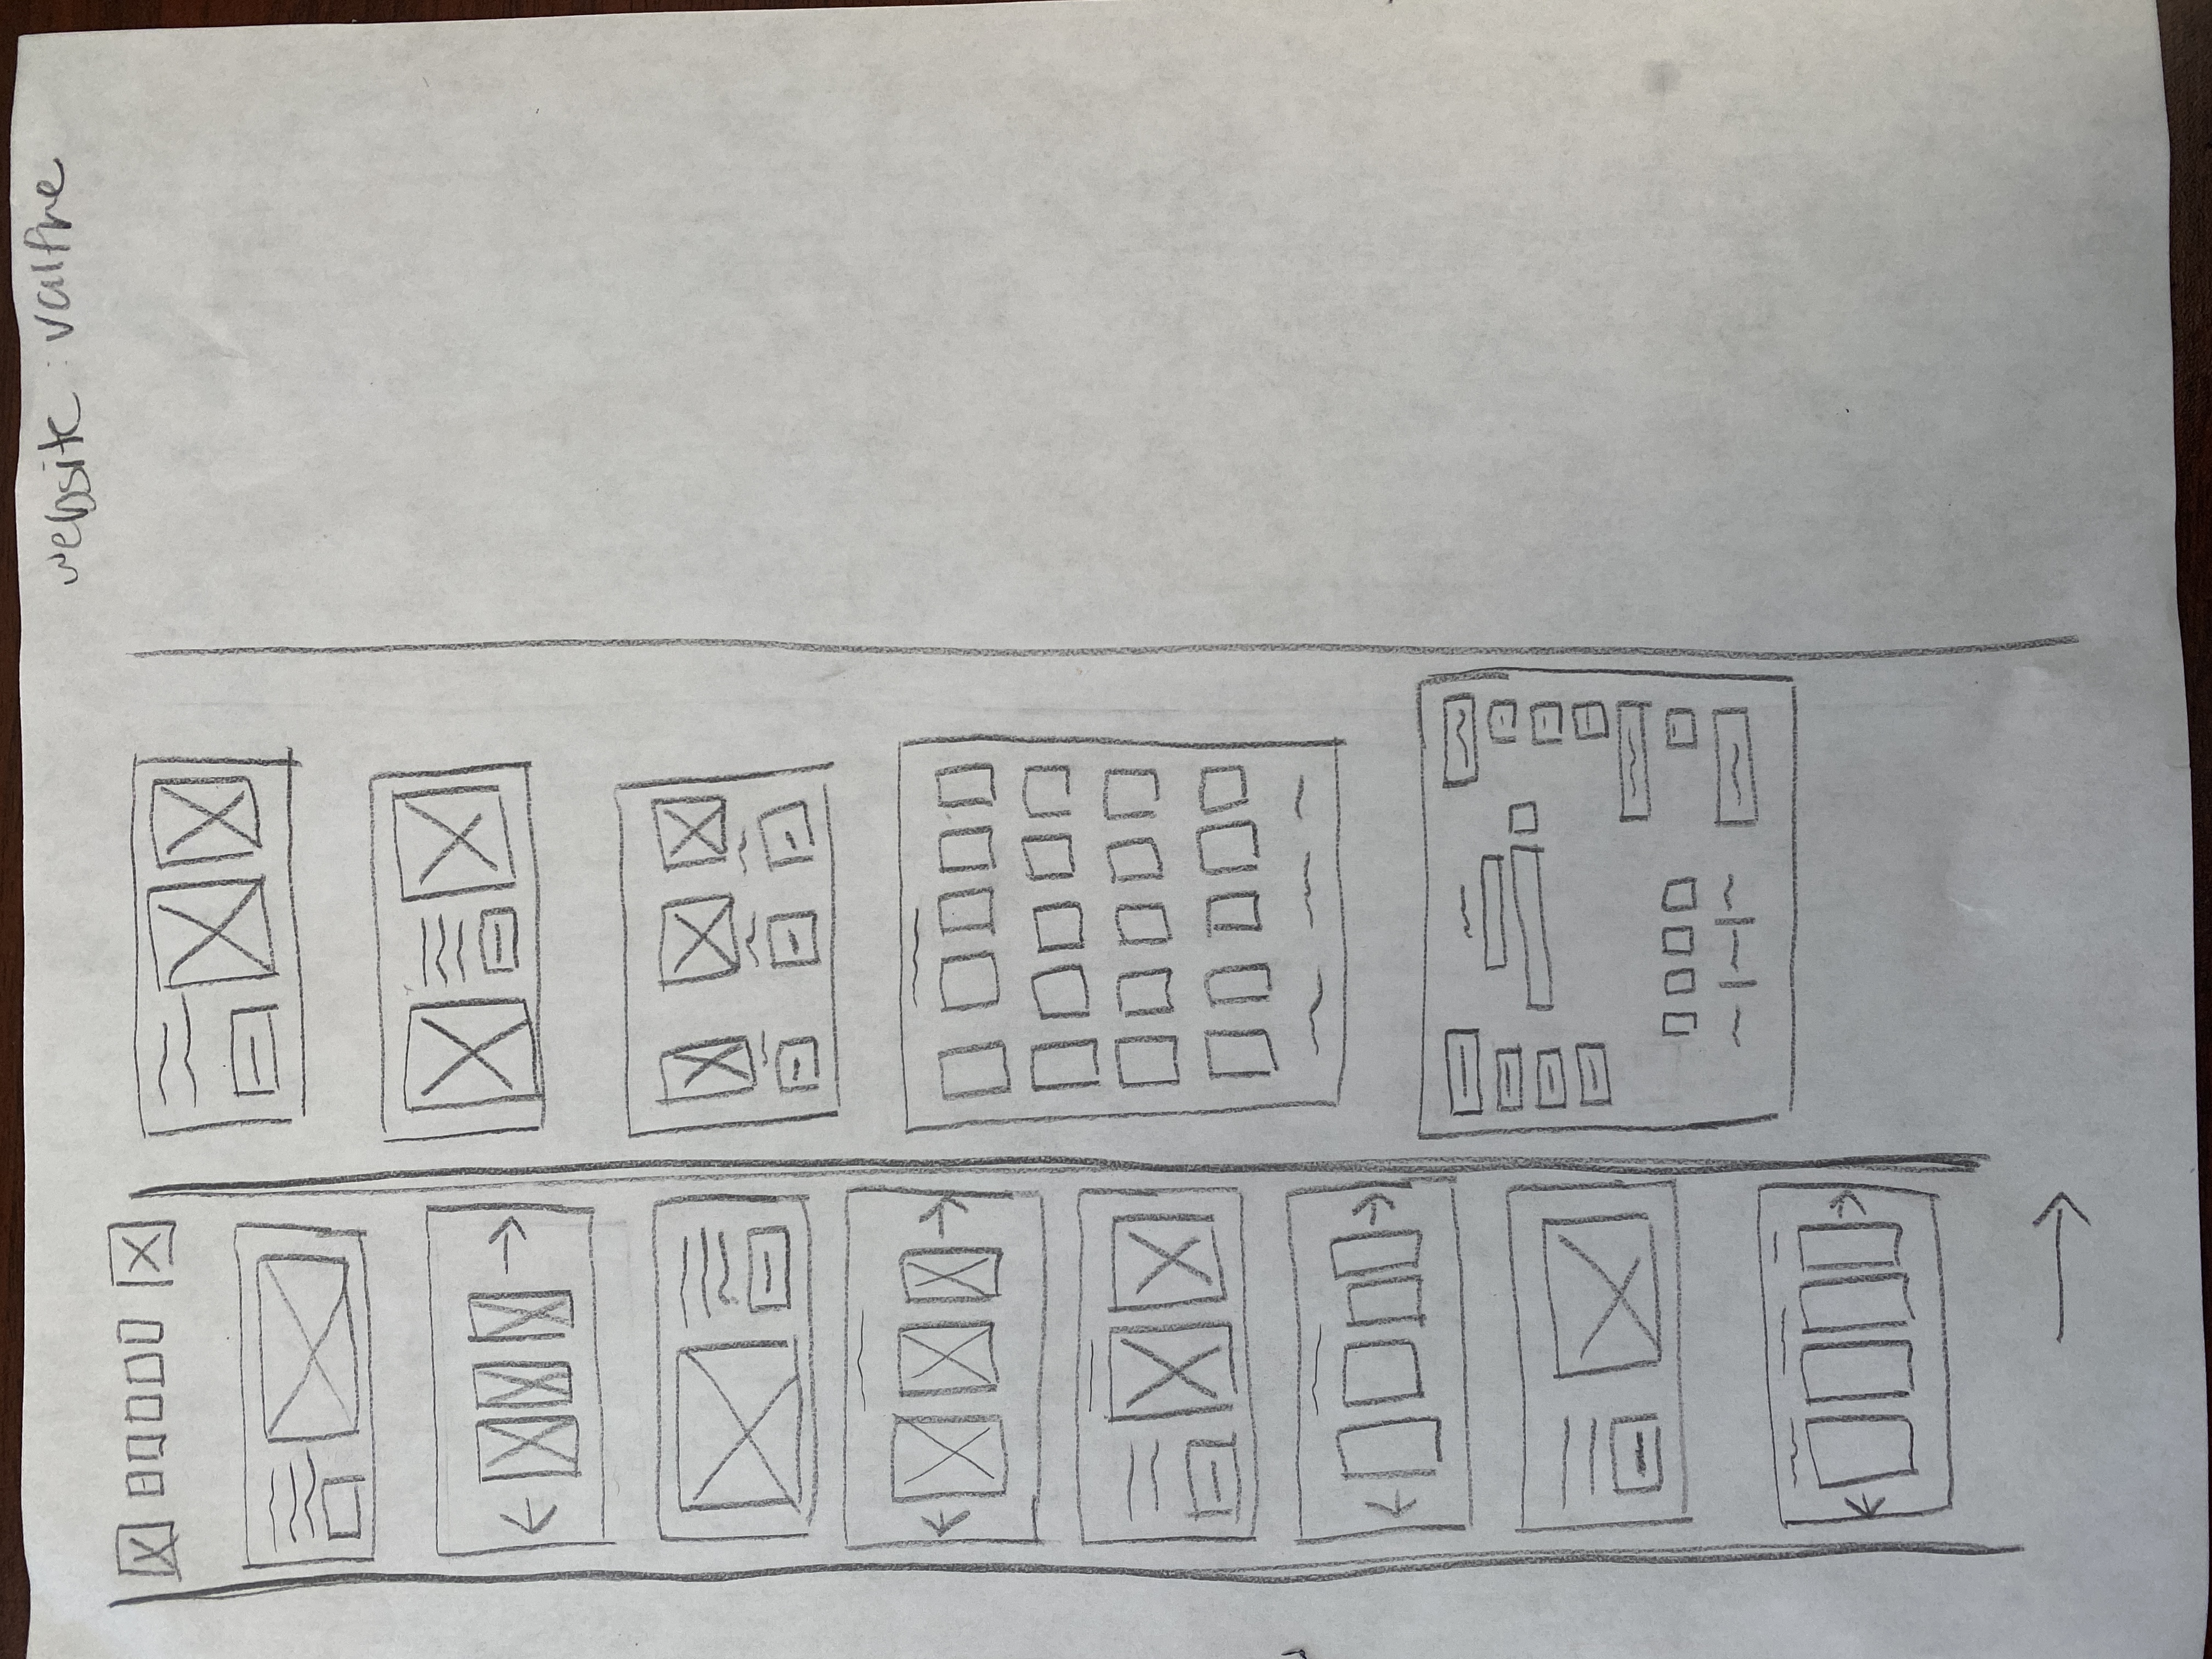 website : valfre